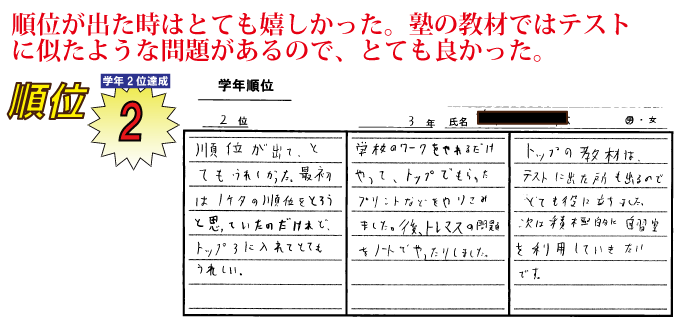 順位が出た時はとても嬉しかった。塾の教材ではテスト
に似たような問題があるので、とても良かった。
順位
学年2位達成
2
学年順位
2 位
3 年 氏名
男・女
順位が出て、と
てもうれしかった。最初
は1ケタの順位をとろう
と思っていたのだけれど、
トップ3に入れてとても
うれしい。
学校のワークをやれるだけ
やって、トップでもらった
プリントなどをやりこみ
ました。後、トレマスの問題
をノートでやったりしました。
トップの教材は、
テストに出た所も出るので
とても役に立ちました。
次は積極的に自習室
を利用していきたい
です。